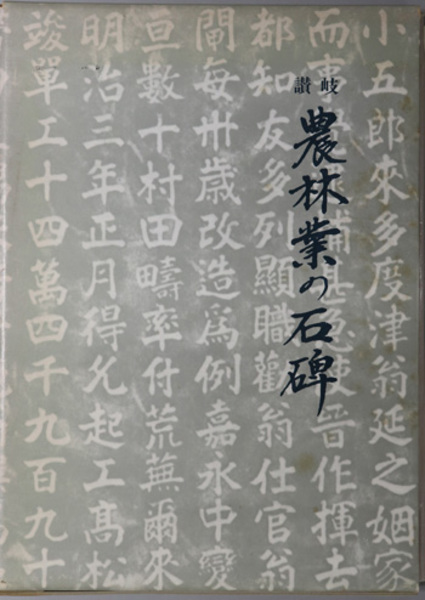 讚岐
農林業の石碑
小五郎來多度津翁延之姻家
而
晋作揮去
都知友多列顯職勸翁仕官翁
閘每卅歳改造爲例嘉永中變
亘數十村田疇率付荒蕪爾來
明治三年正月得允起工髙松
竣單工十四萬四千九百九十